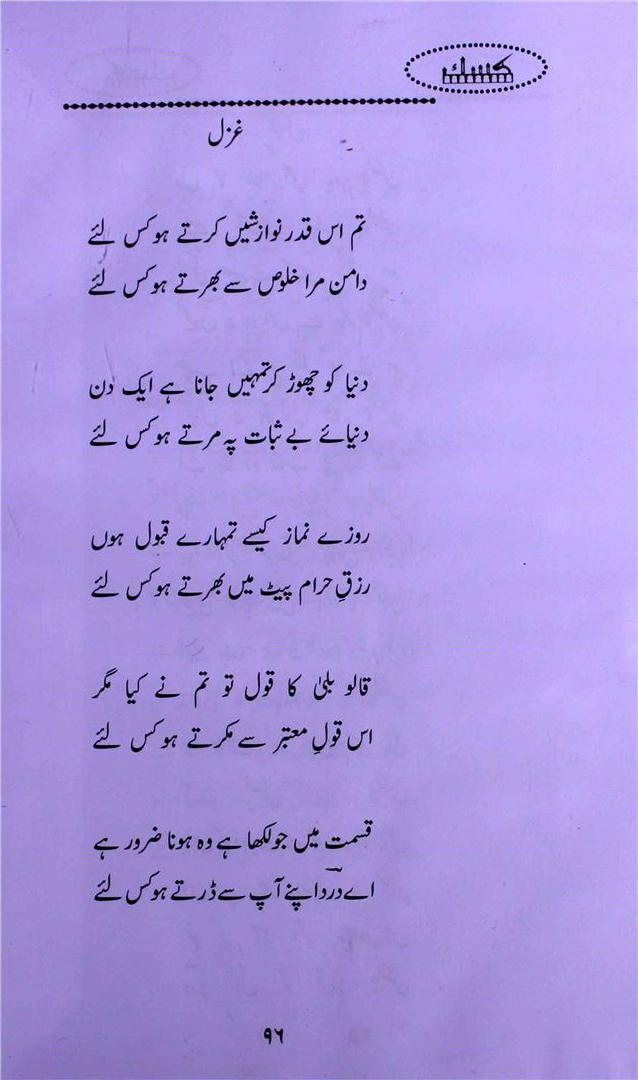 کسک
غزل
تم اس قدر نوازشیں کرتے ہو کس لئے
دامن مرا خلوص سے بھرتے ہو کس لئے
دنیا کو چھوڑ کر تمہیں جانا ہے ایک دن
دنیائے بے ثبات پہ مرتے ہو کس لئے
روزے نماز کیسے تمہارے قبول ہوں
رزقِ حرام پیٹ میں بھرتے ہو کس لئے
قالو بلیٰ کا قول تو تم نے کیا مگر
اس قولِ معتبر سے مکرتے ہو کس لئے
قسمت میں جو لکھا ہے وہ ہونا ضرور ہے
اے دردؔ اپنے آپ سے ڈرتے ہو کس لئے
۹۶